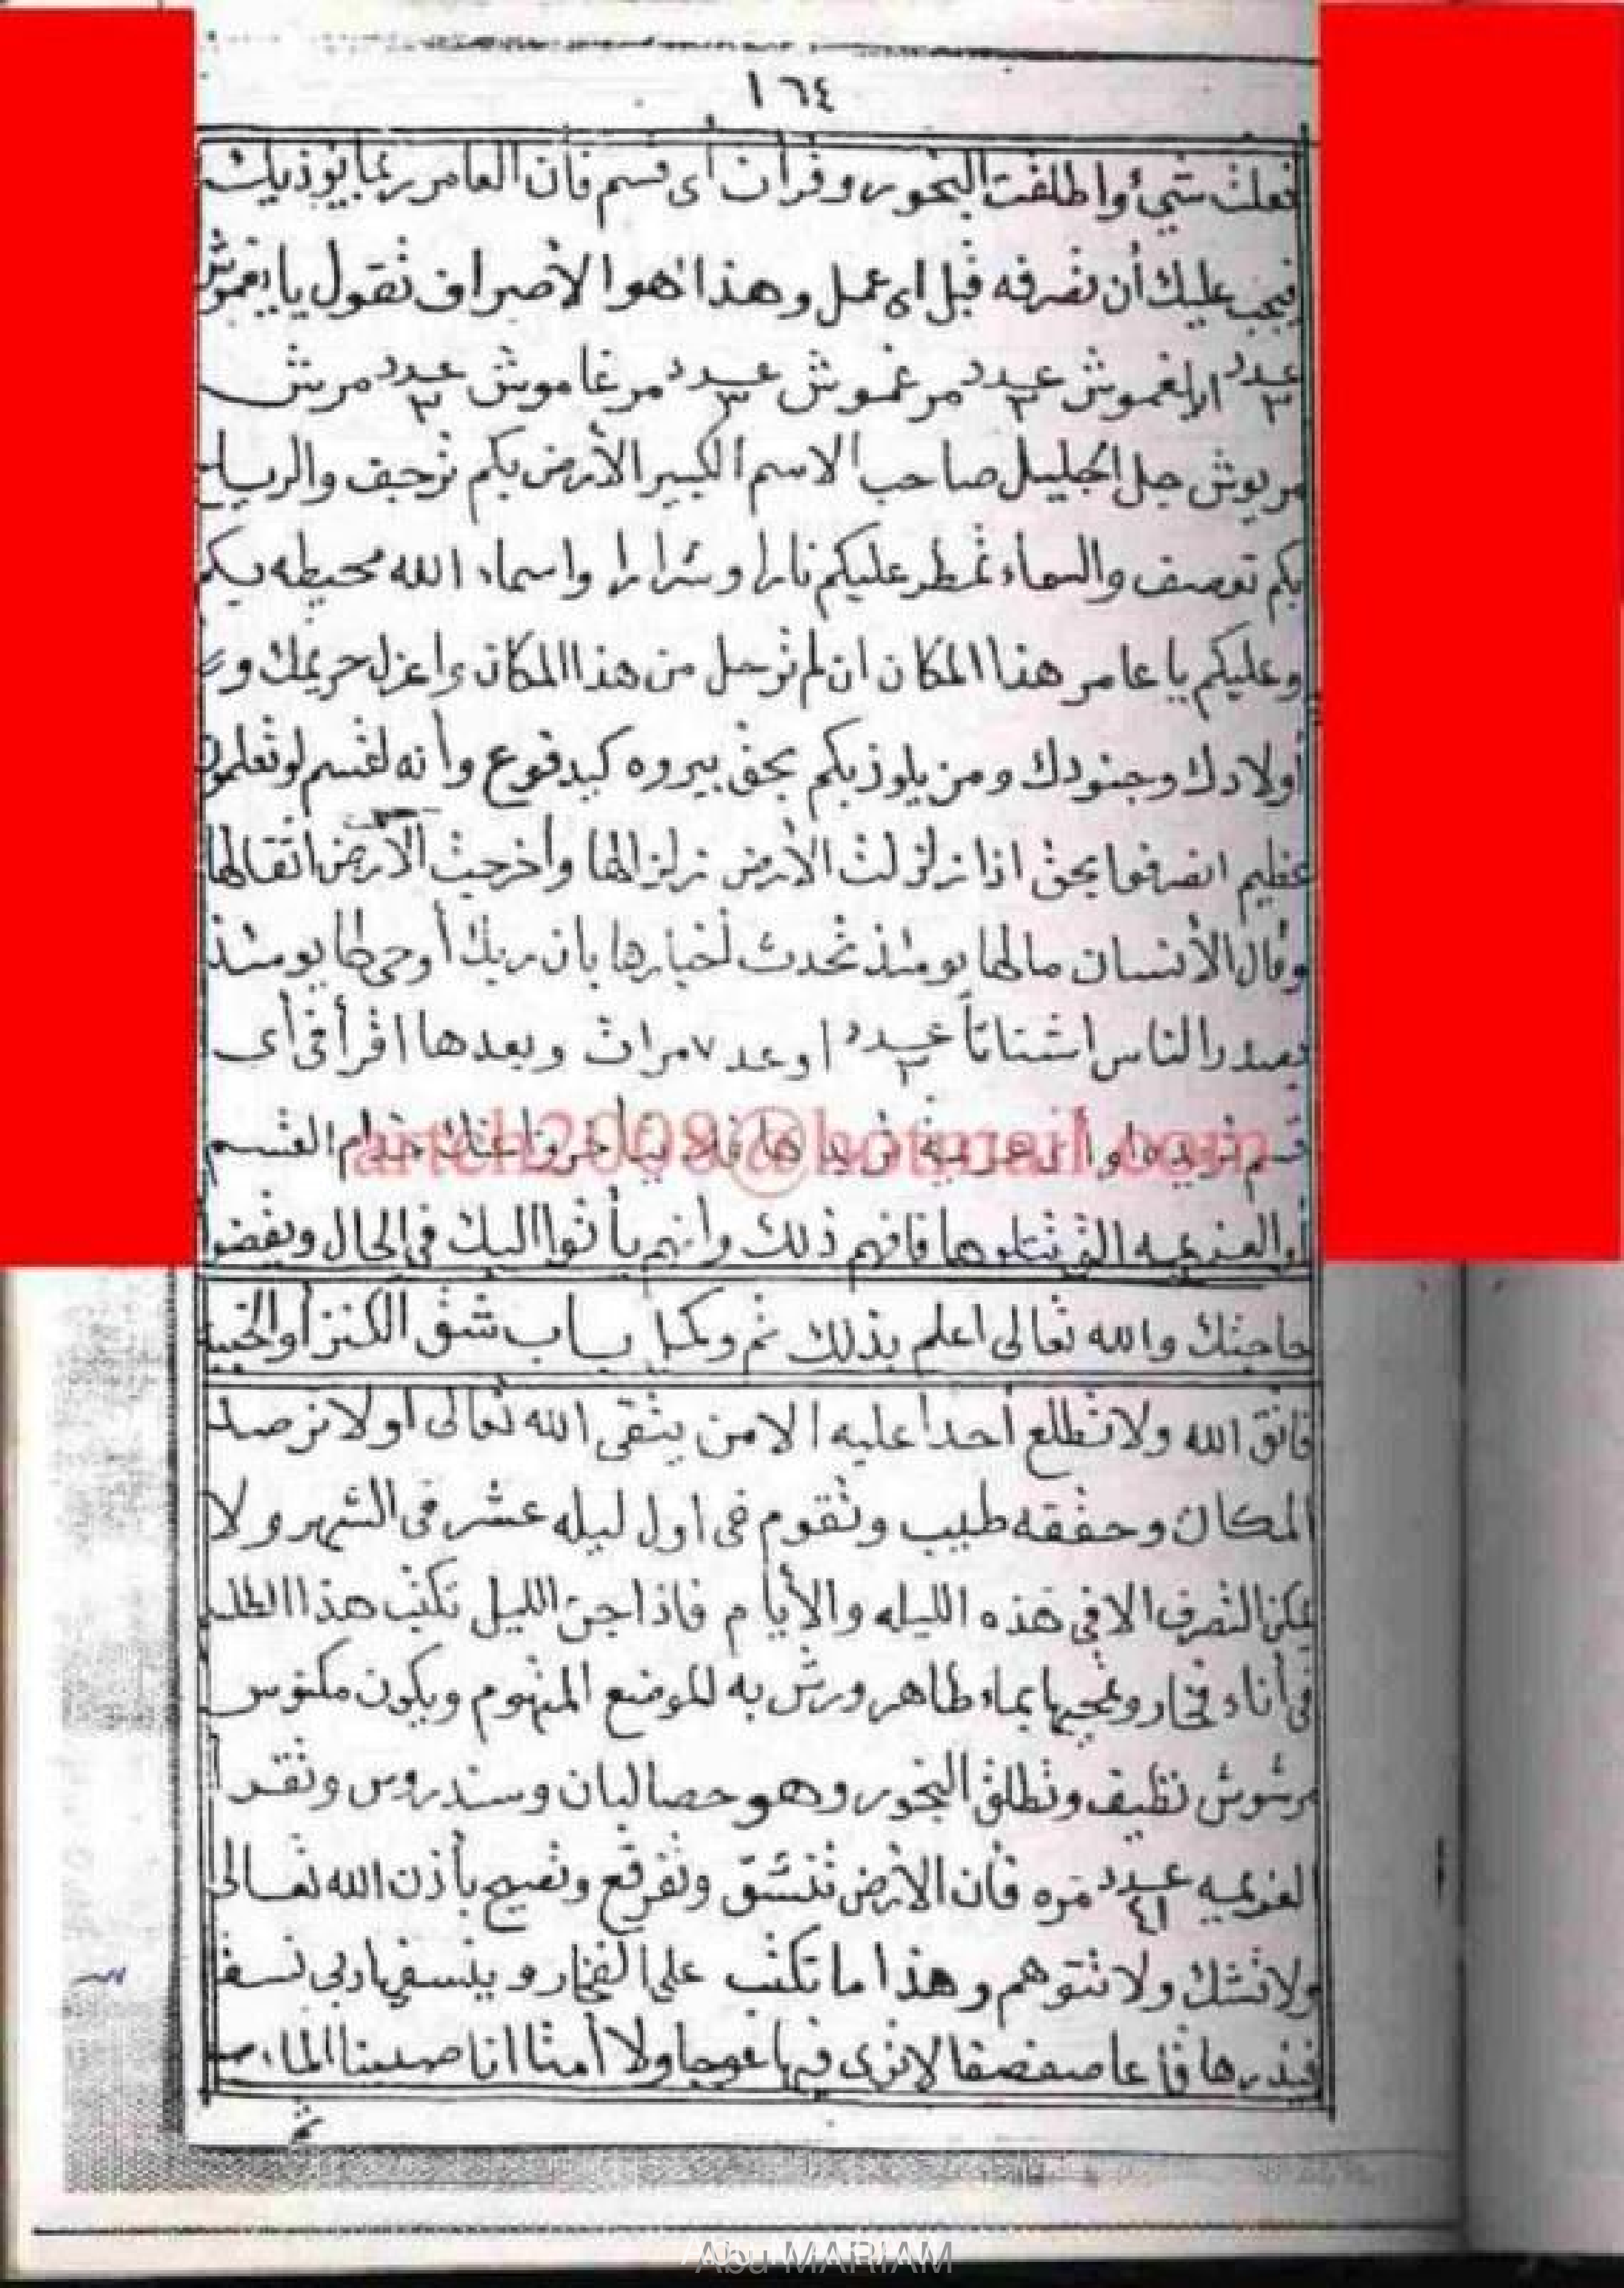 ١٦٤
فعلت شيئ واطلقت البخور وقرأت أى قسم فان العامر ربما يؤذيك
فيجب عليك أن تصرفه قبل اى عمل وهذا هوا الأصراف تقول يا يغموش
عدد ٣ الايغموش عدد ٣ مرغموش عدد ٣ مرغاموش عدد ٣ مرش
مريوش جل الجليل صاحب الاسم الكبير الأرض بكم ترجف والرياح
بكم تعصف والسماء تمطر عليكم نارا وشرارا واسماء الله محيطه بكم
وعليكم يا عامر هذا المكان ان لم ترحل من هذا المكان واعزل حريمك و
أولادك وجنودك ومن يلوذ بكم بحق بيروه كيدفوع وأنه لقسم لو تعلمون
عظيم انصرفوا بحق اذا زلزلت الأرض زلزالها وأخرجت الأرض اثقالها
وقال الأنسان مالها يومئذ تحدث أخبارها بان ربك أوحى لها يومئذ
يصدر الناس اشتاتاً عدد ٣ اوعد ٧ مرات وبعدها اقرأ فى أى
قسم تريده او أى عزيمة تريدها فلا يتأخروا عنك خدام القسم
أو العزيمه التى تتلوها فافهم ذلك وانهم يأتوا اليك فى الحال ويقضوا
حاجتك والله تعالى اعلم بذلك تم وكمل باب شق الكنز أو الخبيه
فاتق الله ولا تطلع أحدا عليه الا من يتقى الله تعالى اولا ترصد
المكان وحققه طيب وتقوم فى اول ليله عشر فى الشهر ولا
يمكن التصرف الا فى هذه الليله والأيام فاذا جن الليل تكتب هذا الطلسم
فى أناء فخار وتمحيها بماء طاهر ورش به للموضع المتهوم ويكون مكنوس
مرشوش نظيف وتطلق البخور وهو حصالبان وسندروس وتقرا
العزيميه عدد ٤١ مره فأن الأرض تنشق وتفرقع وتصيح بأذن الله تعالى
ولا تشك ولا تتوهم وهذا ما تكتب على الفخار و ينسفها ربى نسفا
فيذرها قاعا صفصفا لا ترى فيها عوجا ولا أمتا انا صببنا الماء
ثم
artch2008@hotmail.com
Abu MARIAM